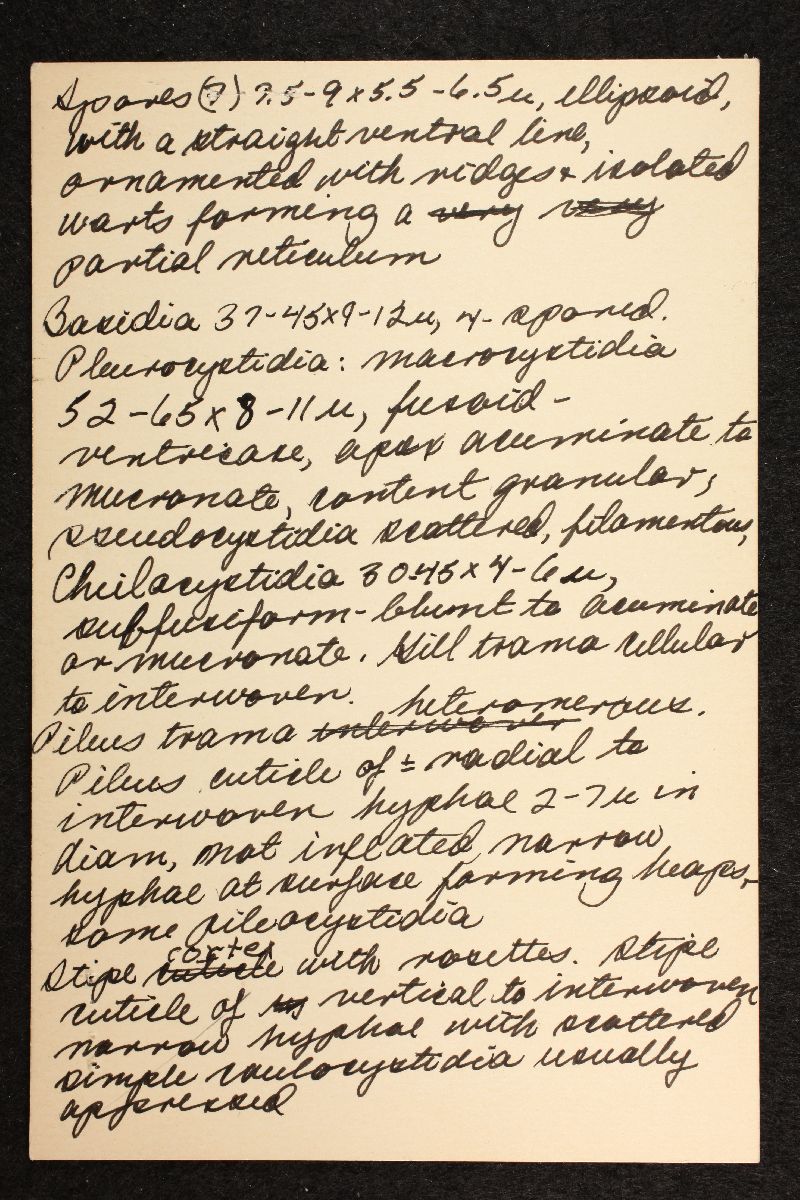 Spores (7) 7.5-9 x 5.5-6.5 u, ellipsoid,
with a straight ventral line,
ornamented with ridges + isolated
warts forming a very very
partial reticulum
Basidia 37-45x9-12u, 4-spored.
Pleurocystidia: macrocystidia
52-65 x 8-11 u, fusoid-
ventricose, apex acuminate to
mucronate, content granular;
pseudocystidia scattered, filamentous,
Cheilocystidia 30-45 x 4-6 u,
subfusiform-blunt to acuminate
or mucronate. Gill trama cellular
to interwoven.
Pileus trama interwoven heteromerous.
Pileus cuticle of ± radial to
interwoven hyphae 2-7 u in
diam, not inflated narrow
hyphae at surface forming heaps,
some pileocystidia
Stipe cuticle cortex with rosettes. Stipe
cuticle of vertical to interwoven
narrow hyphae with scattered
simple caulocystidia usually
appressed